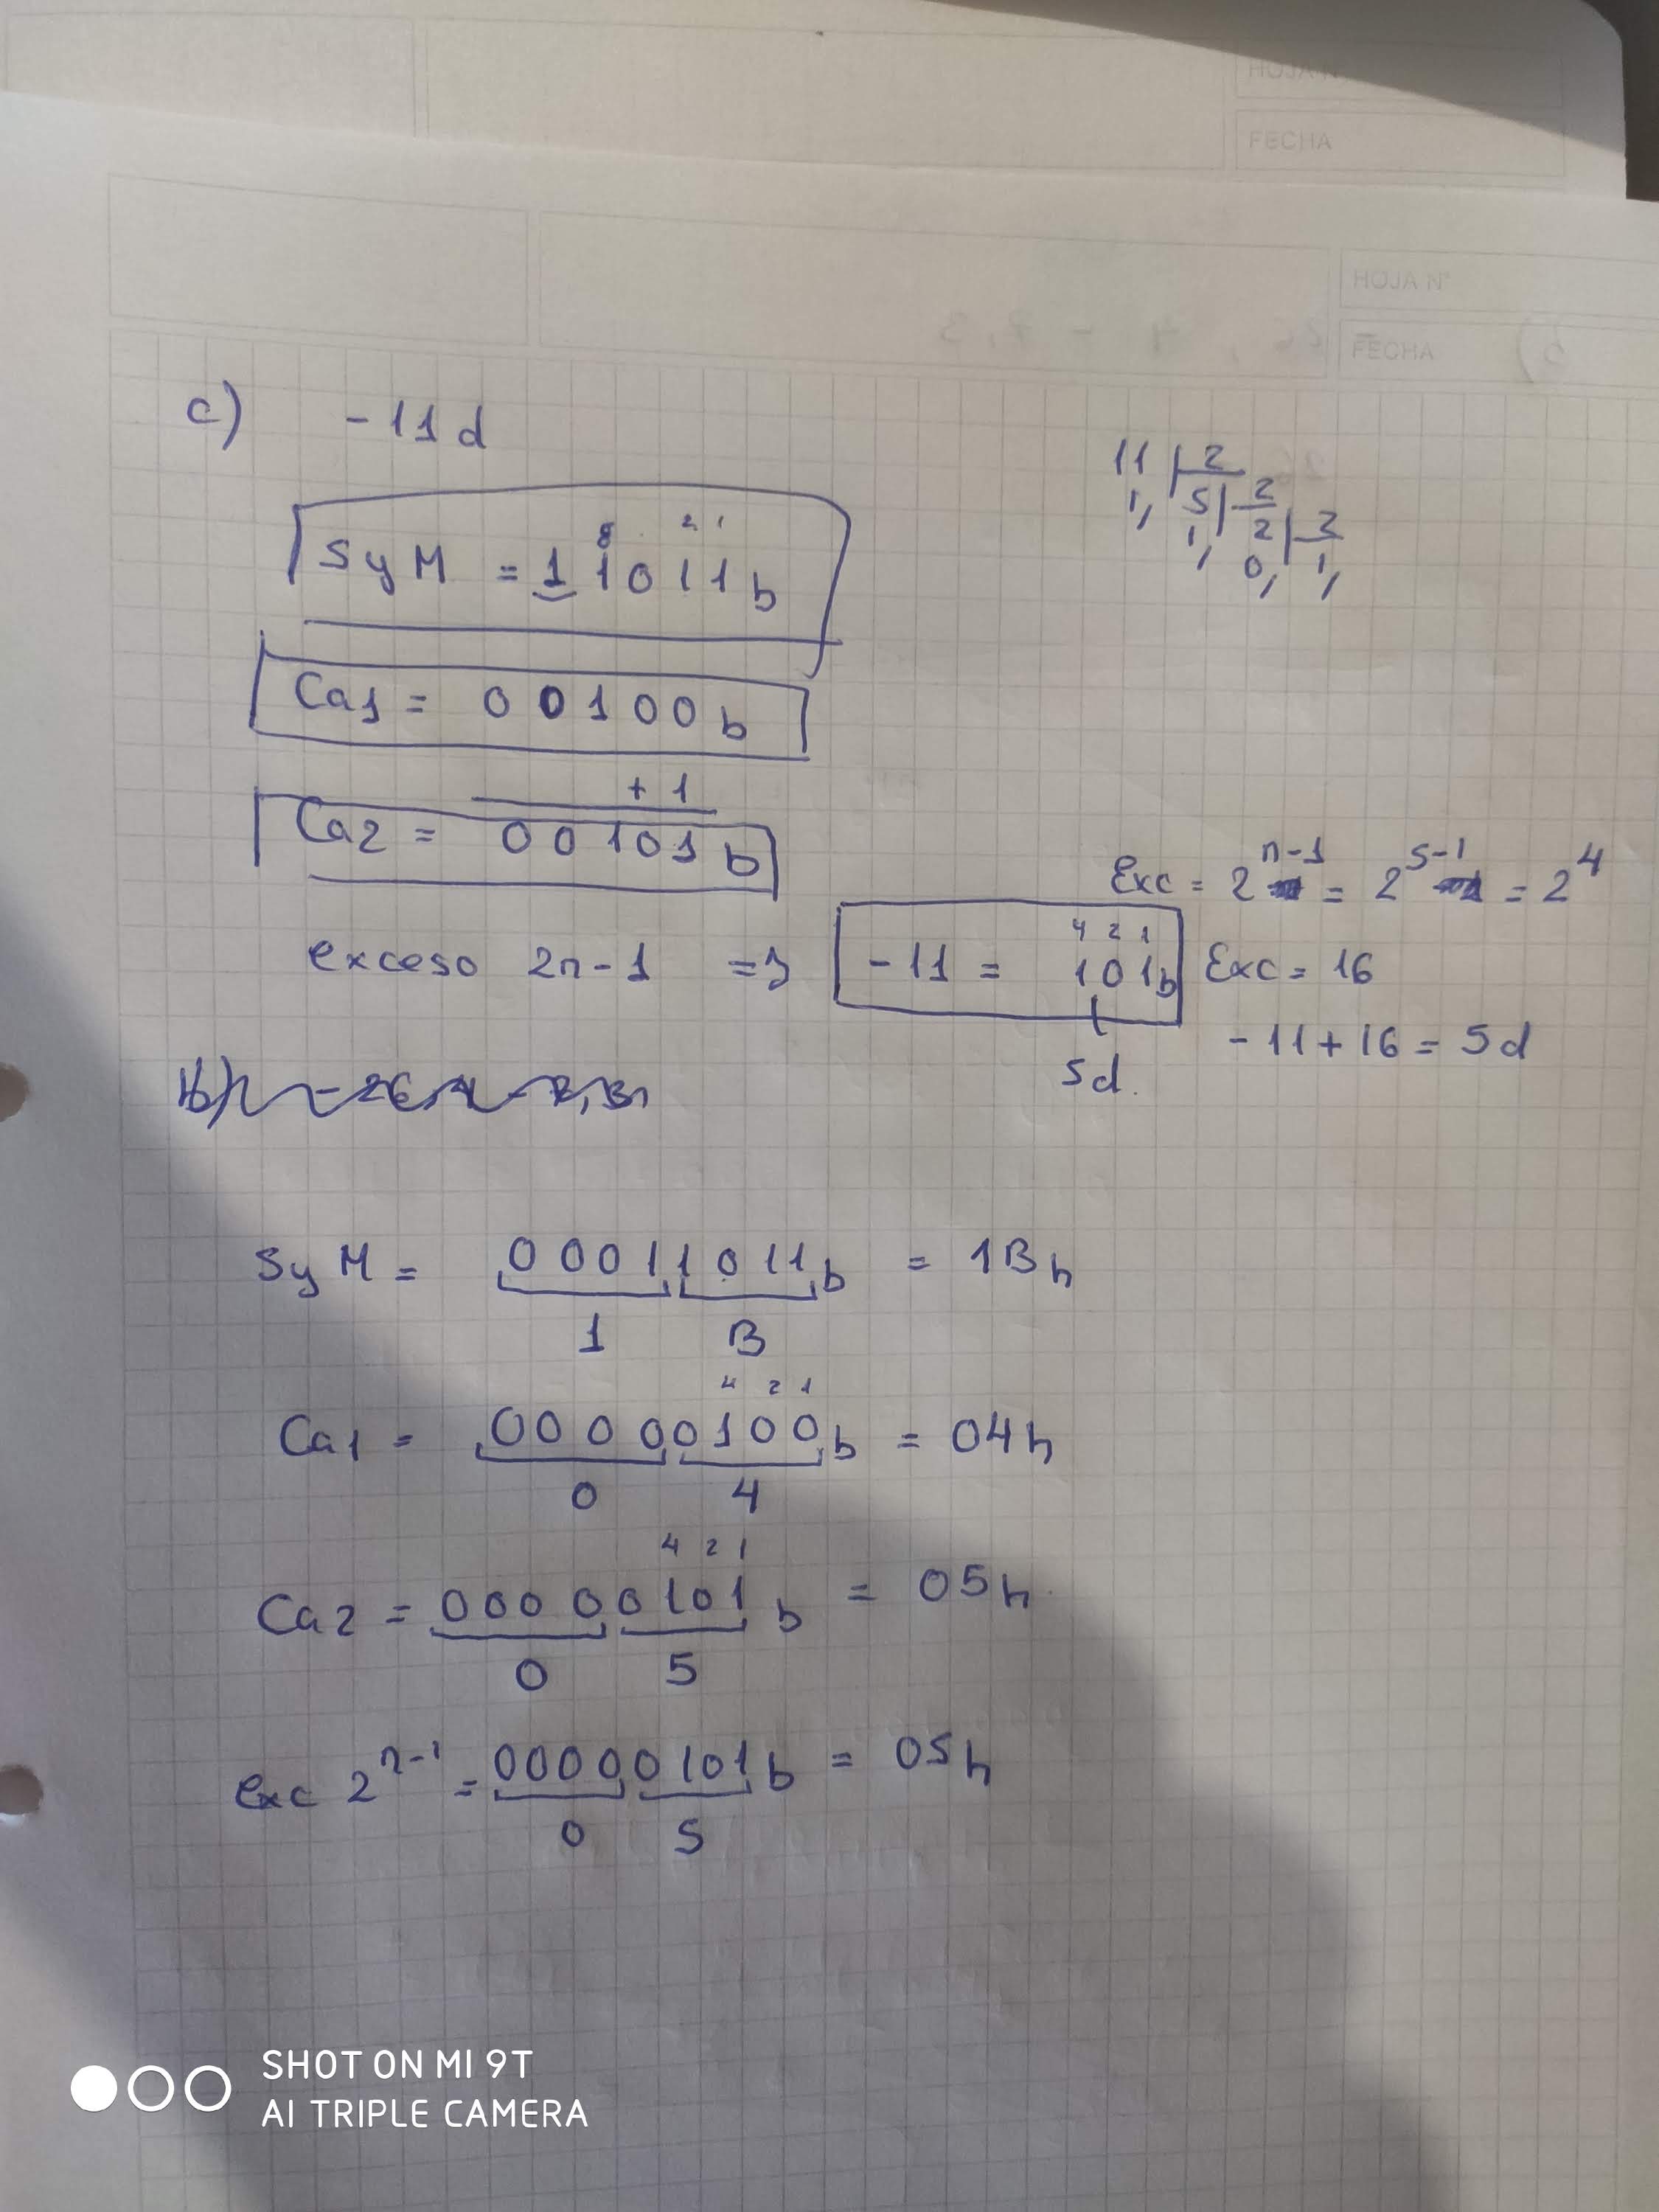 HOJA N°
FECHA
HOJA N°
FECHA
c) -11d
11 | 2
1, 5 | 2
1, 2 | 2
0, 1,
SyM = 11011b
8 2 1
Ca1 = 00100b
+ 1
Ca2 = 00101b
Exc = 2^n-1 = 2^5-1 = 2^4
exceso 2n-1 => -11 = 101b
4 2 1
Exc = 16
5d.
-11+16 = 5d
SyM = 00011011b = 1Bh
1 B
4 2 1
Ca1 = 00000100b = 04h
0 4
4 2 1
Ca2 = 00000101b = 05h
0 5
exc 2^n-1 = 00000101b = 05h
0 5
SHOT ON MI 9T
AI TRIPLE CAMERA